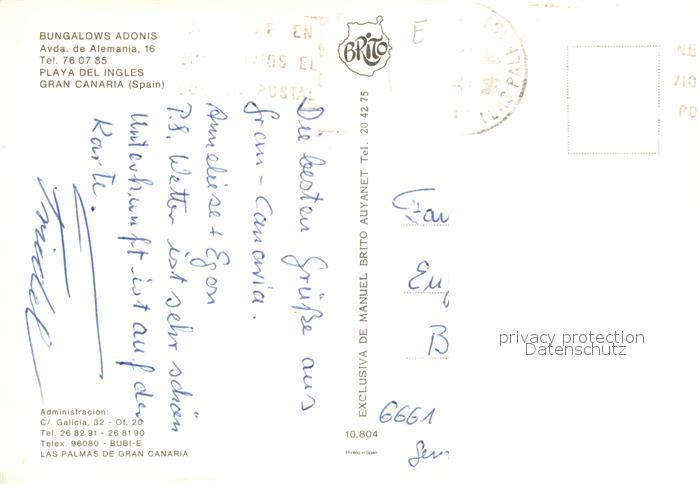 BUNGALOWS ADONIS
Avda. de Alemania, 16
Tel. 76 07 85
PLAYA DEL INGLES
GRAN CANARIA (Spain)
BRITO
E
EN
EL
POSTAL
LAS PAL
NE
VIO
PO
Die besten Grüße aus
Gran-Canaria.
Anneliese + Egon
P.S. Wetter ist sehr schön
Unterkunft ist auf der
Karte.
EXCLUSIVA DE MANUEL BRITO AUYANET Tel. 20 42 75
Fam
Eug
B
6661
privacy protection
Datenschutz
Administración:
C/. Galicia, 32 - Of. 20
Tel. 26 82 91 - 26 81 90
Telex. 96080 - BUBI-E
LAS PALMAS DE GRAN CANARIA
10.804
Printed in Spain